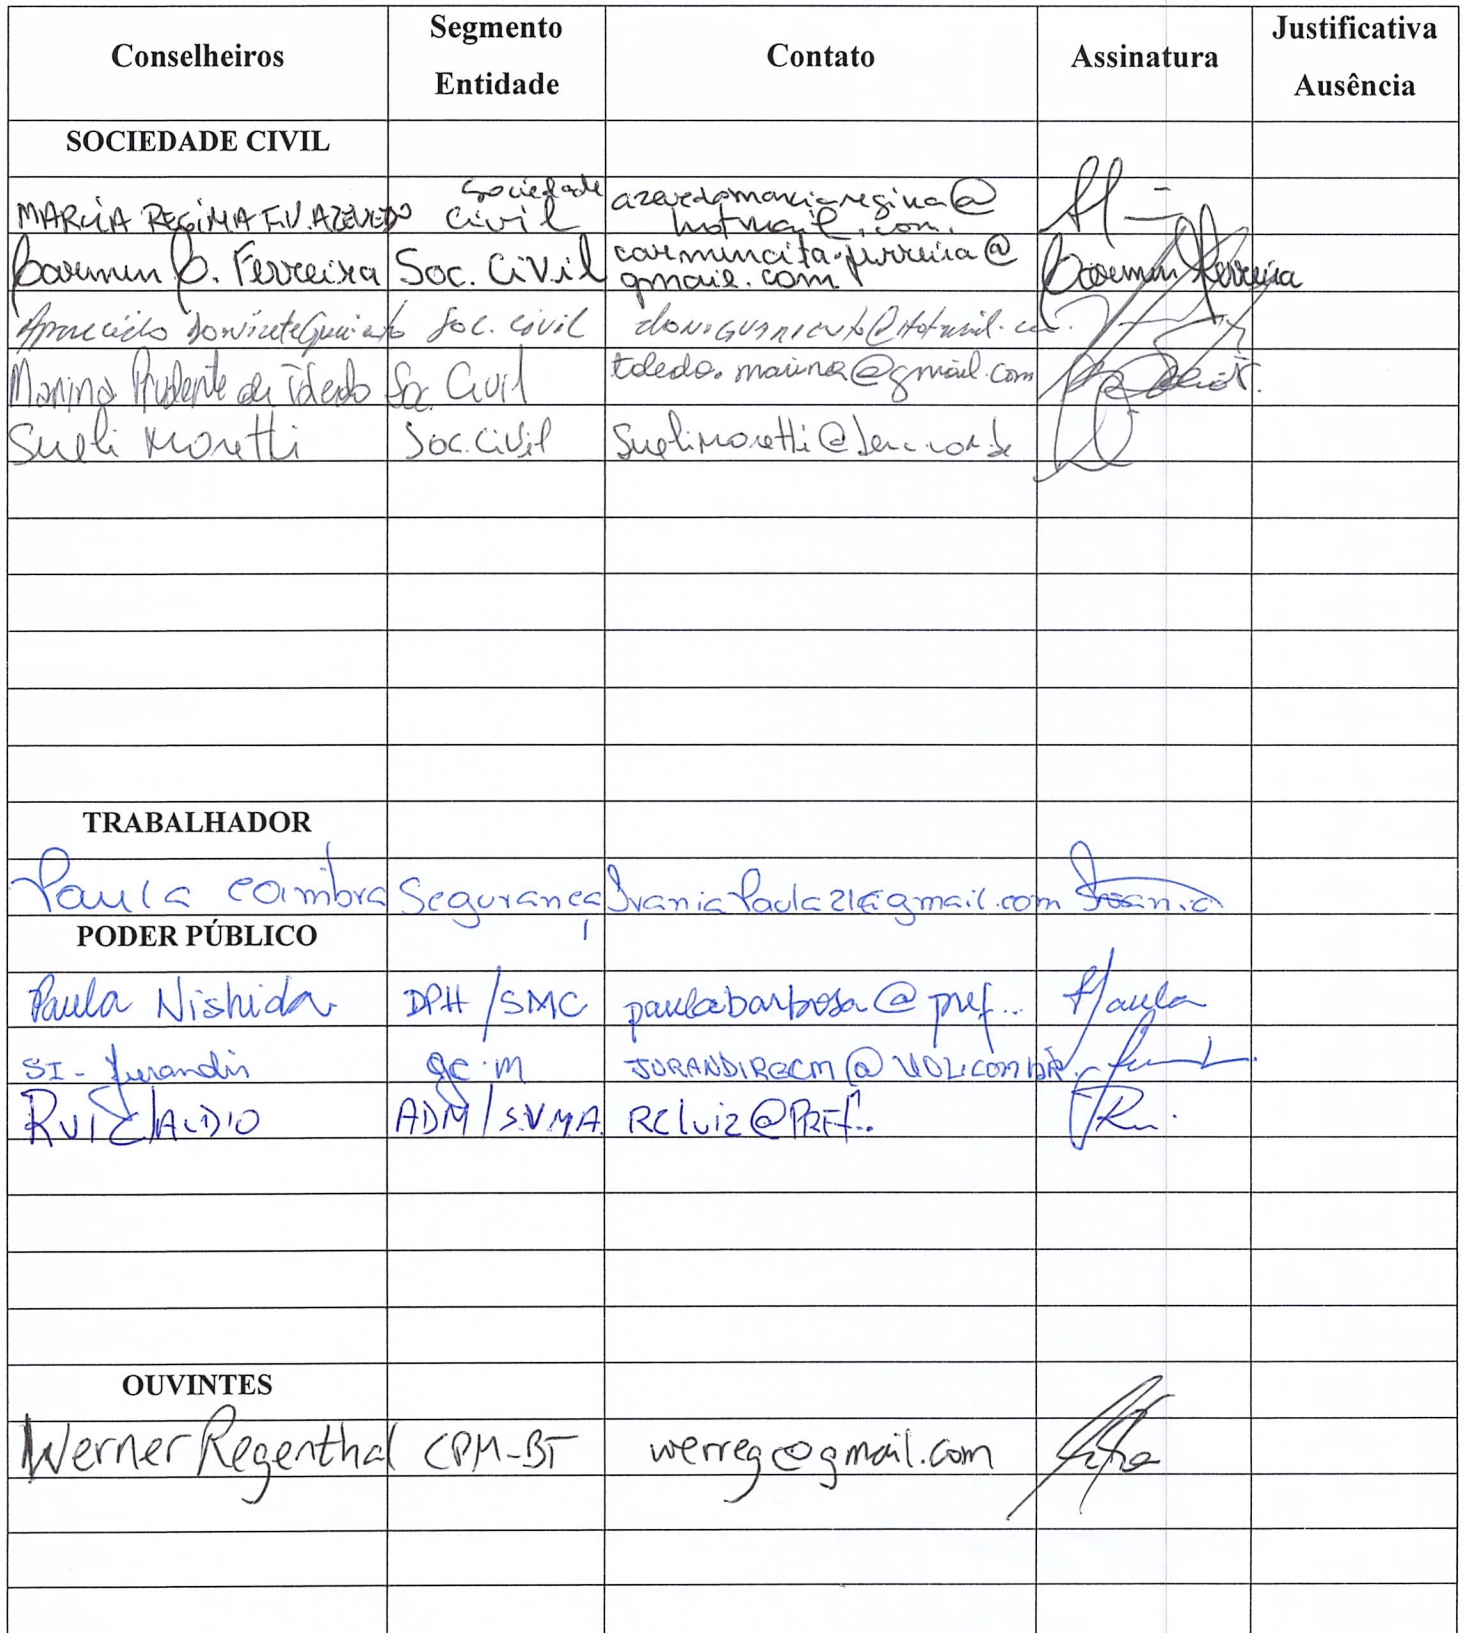 Conselheiros Segmento Entidade Contato Assinatura Justificativa Ausência
SOCIEDADE CIVIL
MARCIA REGINA F.V. AZEVEDO Sociedade Civil azevedomarciaregina@hotmail.com.
Carmen C. Ferreira Soc. Civil carmincita.ferreira@gmail.com Carmen Ferreira
Aparecido Donizete Soc. Civil
Marina Prudente de Toledo Soc. Civil toledo.marina@gmail.com
Sueli Moretti Soc. Civil
TRABALHADOR
Paula Coimbra Segurança IvaniaPaula21@gmail.com Ivania
PODER PÚBLICO
Paula Nishida DPH/SMC paulabarbosa@pref... Paula
SI - Jurandir gc.m JURANDIRGCM@UOL.COM.BR
RUI CLAUDIO ADM/S.V.M.A. RCluiz@PREF.. Rui
OUVINTES
Werner Regenthal CPM-BT werreg@gmail.com